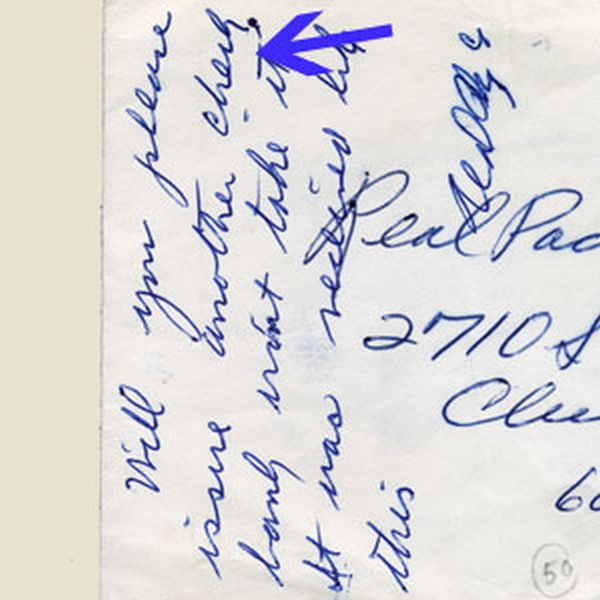 Will you please
issue another check
bank wont take it.
It was recieved like
this
Real Pad
2710 S
Chi
60
50